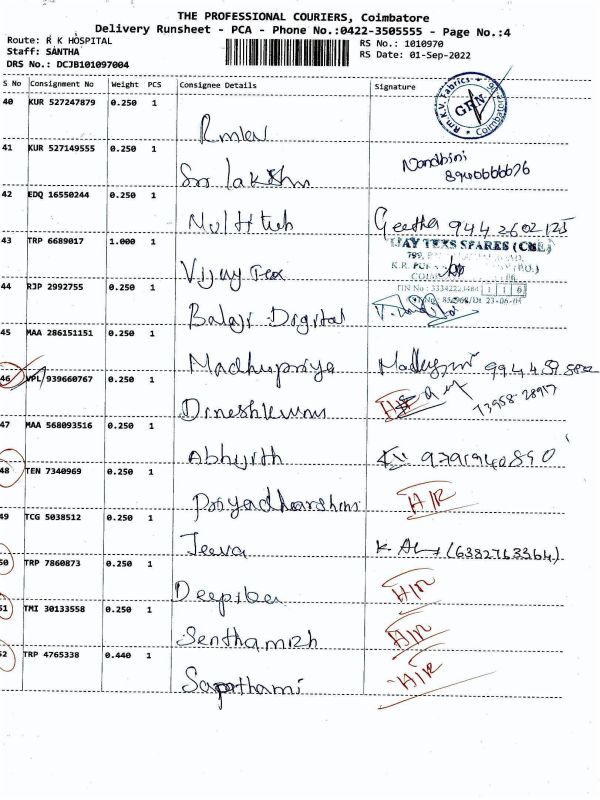 THE PROFESSIONAL COURIERS, Coimbatore
Delivery Runsheet - PCA - Phone No.:0422-3505555 - Page No.:4
Route: R K HOSPITAL
Staff: SANTHA
DRS No.: DCJB101097004
RS No.: 1010970
RS Date: 01-Sep-2022
S No Consignment No Weight PCS Consignee Details Signature
40 KUR 527247879 0.250 1
R.m.K.V. Fabrics
GRN
Coimbatore
41 KUR 527149555 0.250 1
Sri lakshmi Nandhini
42 EDQ 16550244 0.250 1
Geetha 944 2602125
43 TRP 6689017 1.000 1
Vijay Tex
VIJAY TEXS SPARES (CBE.)
44 RJP 2992755 0.250 1
Balaji Digital
45 MAA 286151151 0.250 1
Madhupriya
46 VPL 939660767 0.250 1
Dineshkumar
73958-28917
47 MAA 568093516 0.250 1
Abhijith 9791940890
48 TEN 7340969 0.250 1
Priyadharshini
49 TCG 5038512 0.250 1
Jeeva (6382763364)
50 TRP 7860873 0.250 1
Deepika
51 TMI 30133558 0.250 1
Senthamizh
52 TRP 4765338 0.440 1